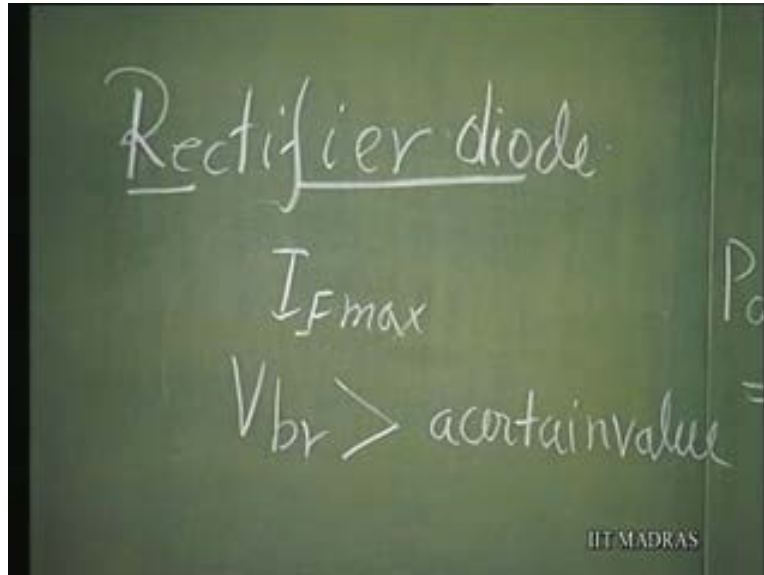 Rectifier diode.
I_Fmax
V_br > a certain value
Po
=
IIT MADRAS